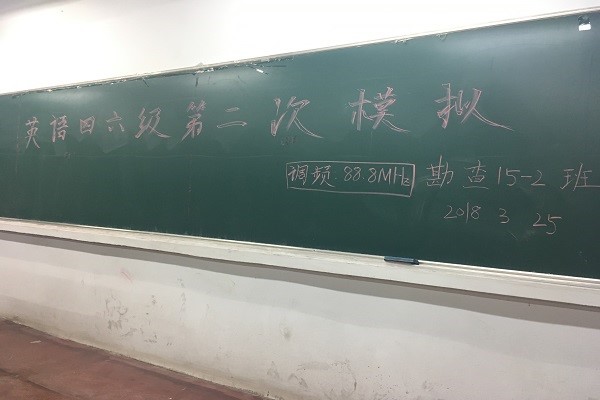 英语四六级第二次模拟
调频:88.8MHz 勘查15-2班
2018 3 25